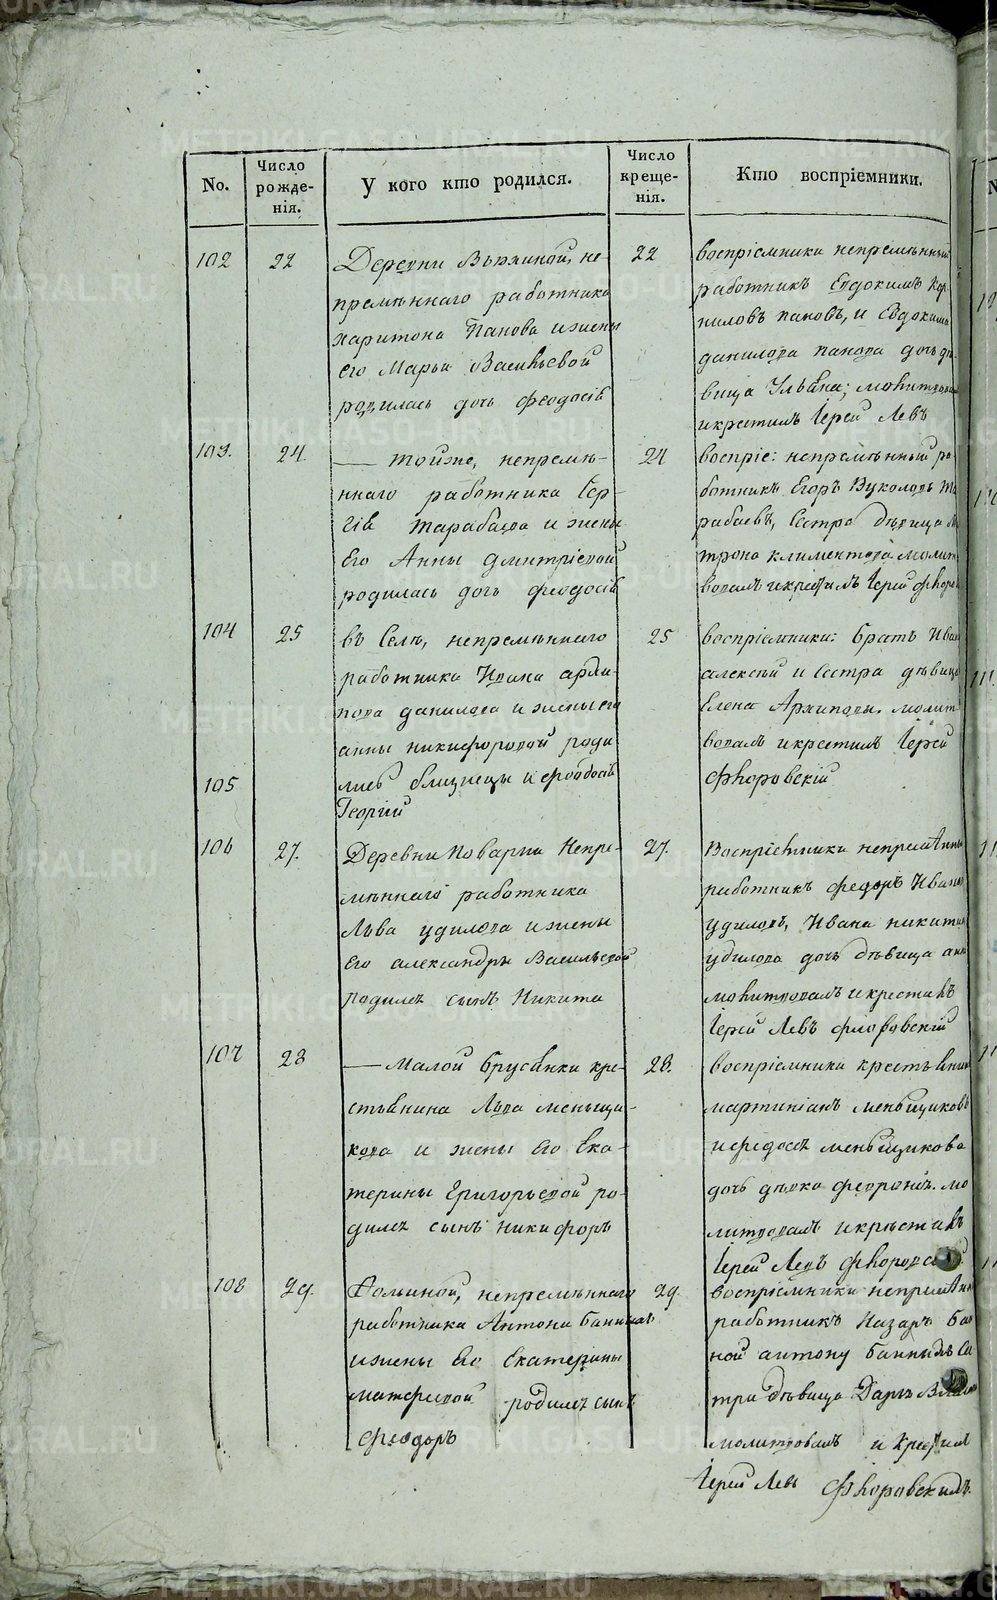 No.
Число
рожде-
нія.
У кого кто родился.
Число
креще-
нія.
Кто воспріемники.
102
22
Деревни непремѣннаго работника
Харитона Панова и жены
его Марьи Васильевой
родилась дочь Феодосія
22
воспріемники непремѣнный
работникъ Евдокимъ Кор-
ниловъ Пановъ, и Евдокима
Данилова Панова дочь дѣ-
вица молитвовалъ
и крестилъ Іерей Левъ
103.
24.
— тойже, непремѣ-
ннаго работника Сер-
гія Тарабаева и жены
Его Анны Дмитріевой
родилась дочь Феодосія
24
воспріе: непремѣнный ра-
ботникъ Егоръ Вуколовъ Та-
рабаевъ, Сестра дѣвица Ма-
трона Климентова молит-
вовалъ и крестилъ Іерей
104
25
въ Селѣ, непремѣннаго
работника Ивана Архи-
пова Данилова и жены его
Анны Никифоровой роди-
лись близнецы и
105
Георгій
25
воспріемники: братъ Ивана
Алексѣй и Сестра дѣвица
Елена Архиповы. молит-
вовалъ и крестилъ Іерей
Флоровскій
106
27.
Деревни Поварни Непре-
мѣннаго работника
Льва Удилова и жены
Его Александры Васильевой
родился сынъ Никита
27.
Воспріемники непремѣнный
работникъ Федоръ Иванов
Удиловъ, Ивана Никитина
Удилова дочь дѣвица Анна
молитвовалъ и крестилъ
Іерей Левъ Флоровскій
107
28
— Малой Брусянки кре-
стьянина Льва Меньщи-
кова и жены Его Ека-
терины Григорьевой ро-
дился сынъ Никифоръ
28.
воспріемники крестьянинъ
Мартиніанъ Меньщиковъ
и Меньщикова
дочь дѣвка мо-
литвовалъ и крестилъ
Іерей Левъ
108
29.
непремѣннаго
работника Антона
и жены Его Екатерины
Матфеевой родился сынъ
Феодоръ
29.
воспріемники непремѣнный
работникъ Назаръ
Антону
дѣвица
молитвовалъ и крестил
Іерей Левъ Флоровскій
METRIKI.GASO-URAL.RU